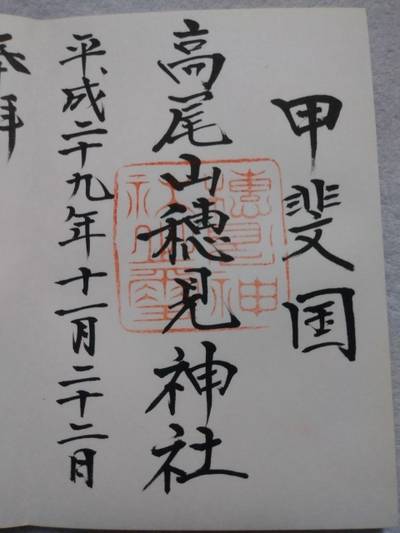 甲斐国
高尾山穂見神社
平成二十九年十一月二十二日
奉拝